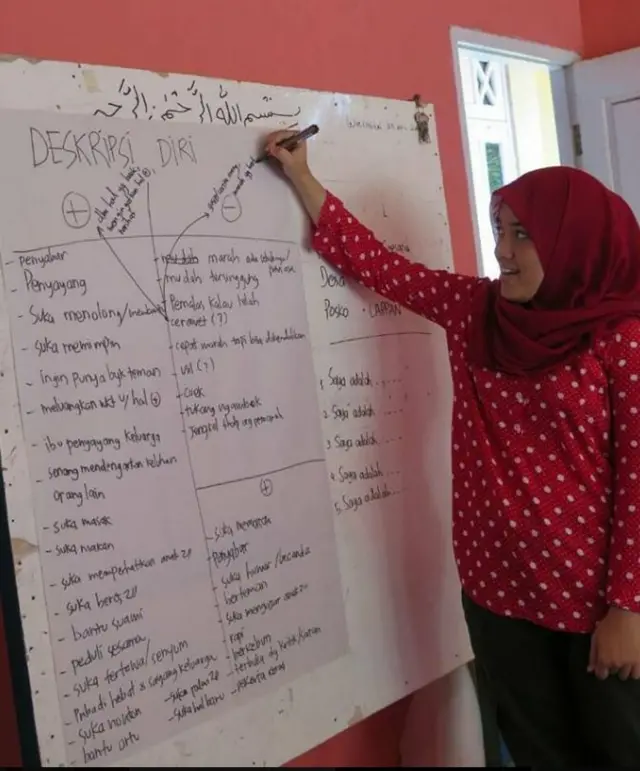 بِسْمِ اللّٰهِ الرَّحْمٰنِ الرَّحِ
DESKRIPSI DIRI
+
-
- Penyabar
- Penyayang
- Suka menolong/
- Suka memimpin
- ingin punya byk teman
- meluangkan wkt u/ hal +
- ibu penyayang keluarga
- senang mendengarkan keluhan
orang lain
- suka masak
- suka makan
- suka memperhatikan anak 2x
- suka beres 2x
- bantu suami
- peduli sesama
- suka tertawa/senyum
- Pribadi hebat & sayang keluarga
- suka nonton
- bantu ortu
- mudah marah
- mudah tersinggung
- Pemalas kalau lelah
- cerewet (?)
- cepat marah tapi bisa dikendalikan
- usil (?)
- cuek
- tukang
+
- suka memasak
- Penyabar
- suka humor/bercanda
- berteman
- suka mengurus anak 2x
- rapi
- berkebun
- terbuka dg kritik/saran
- pekerja keras
Posko
1. Saya adalah .....
2. Saya adalah .....
3. Saya adalah ....
4. Saya adalah ...
5. Saya adalah ...